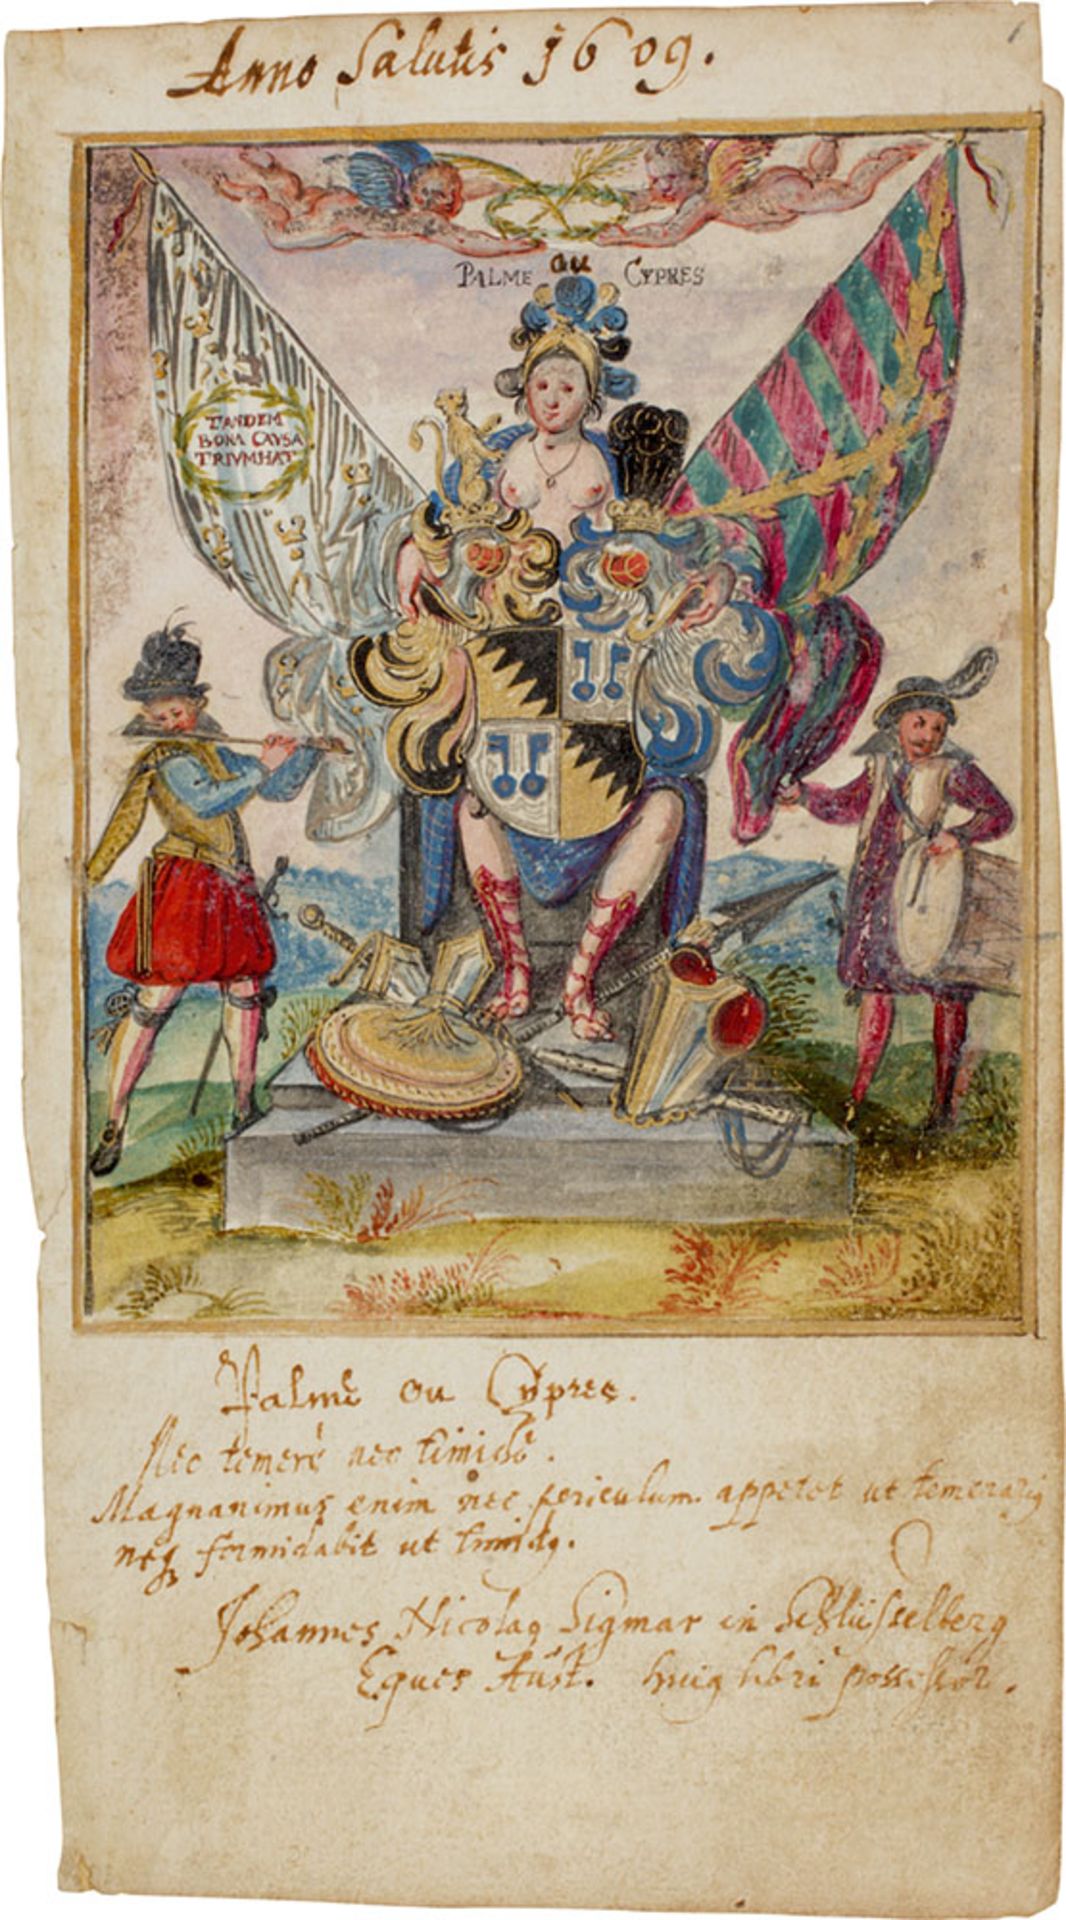 Anno Salutis 1609.
PALME ou CYPRES
TANDEM
BONA CAVSA
TRIVMHAT
Palme ou Cypres.
Nec temerè nec timidè.
Magnanimus enim nec periculum appetet ut temerarig
neq formidabit ut timidg.
Johannes Nicolag Sigmar in Schlüsselberg
Eques Aust. huig libri possessor.